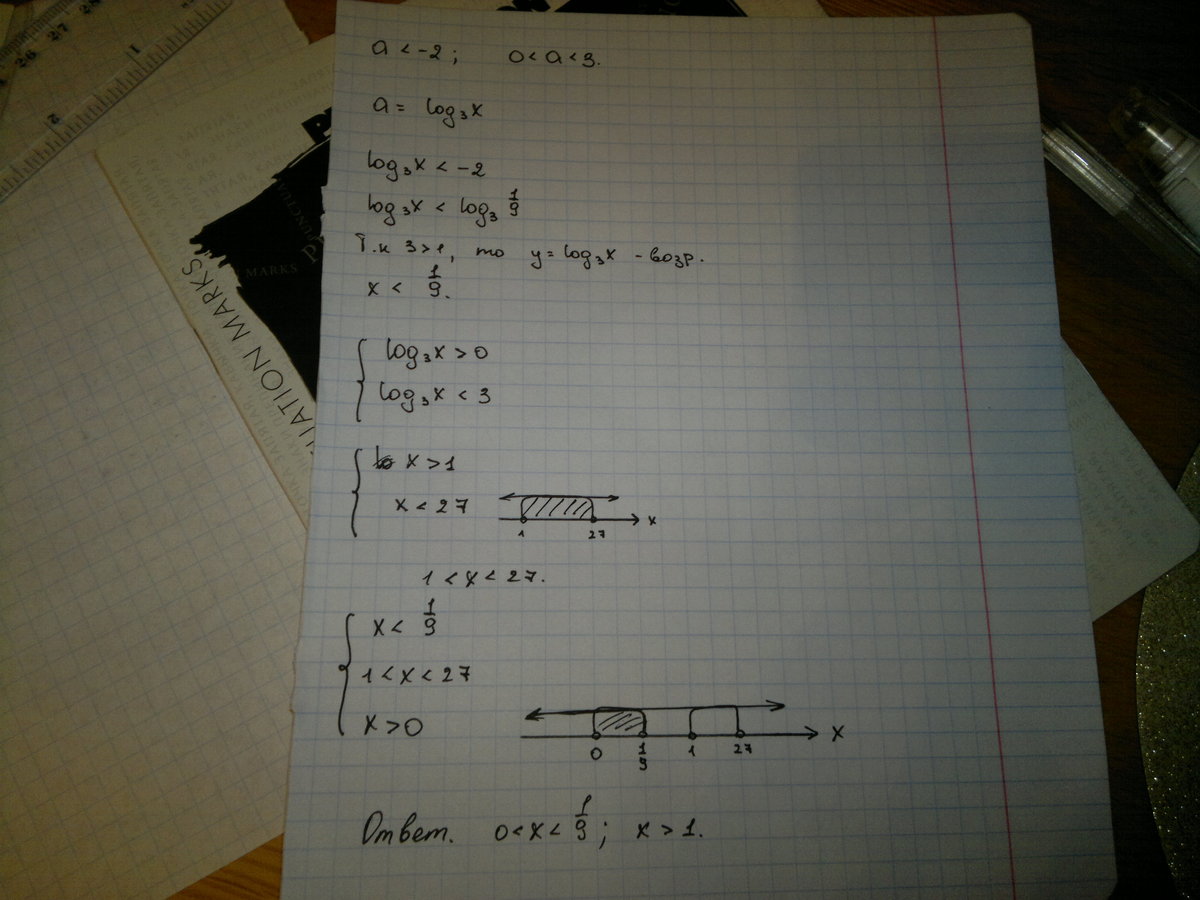 a < -2 ; 0 < a < 3.
a = log₃x
log₃x < -2
log₃x < log₃ 1/9
Т.к 3>1, то y = log₃x - возр.
x < 1/9.
log₃x > 0
log₃x < 3
x > 1
x < 27
x
1 27
1 < x < 27.
x < 1/9
1 < x < 27
x > 0
x
0 1/9 1 27
Ответ. 0 < x < 1/9 ; x > 1.
26 27 28
1
2
MARKS
UATION MARKS